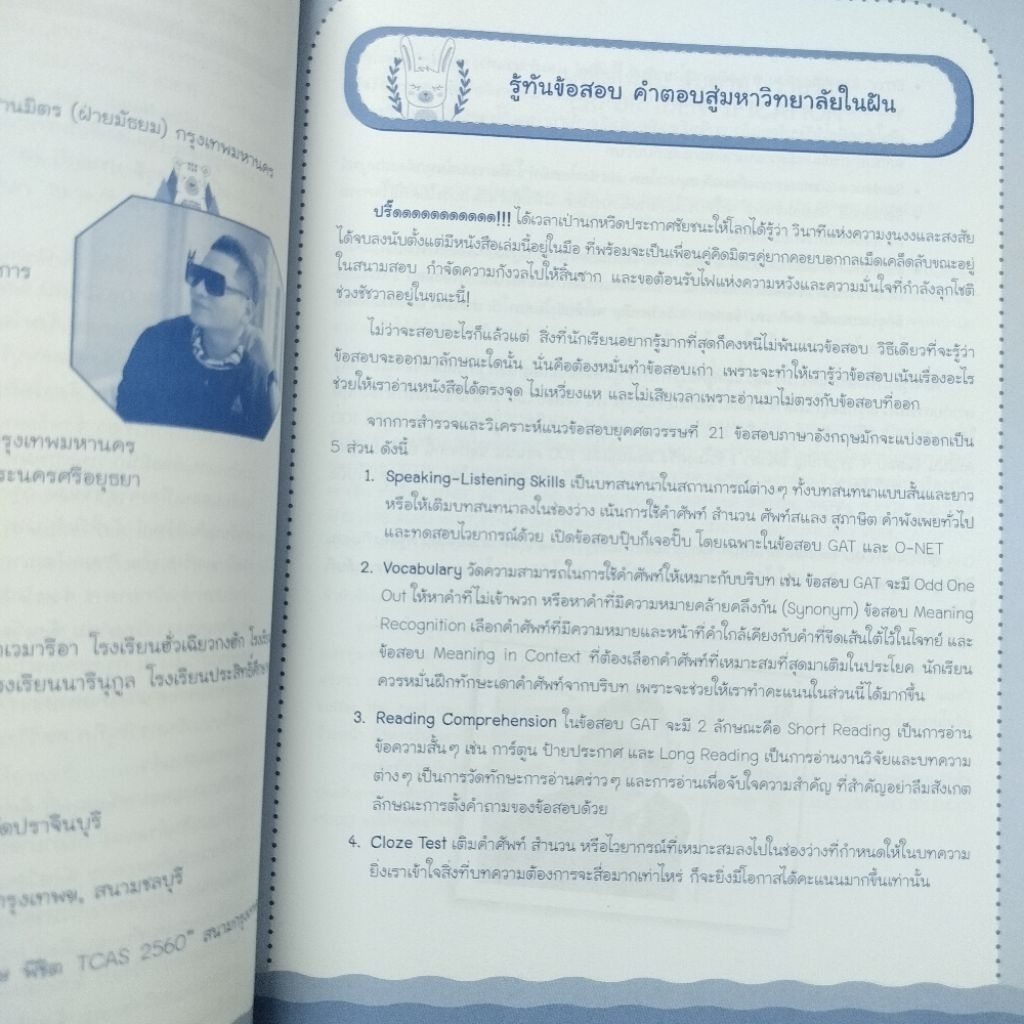 (ฝ่ายมัธยม) กรุงเทพมหานคร
การ
กรุงเทพมหานคร
ระนครศรีอยุธยา
เวมารีอา โรงเรียนฮั่วเฉียวกงฮัก
โรงเรียนนารีนุกูล
ปราจีนบุรี
กรุงเทพฯ, สนามชลบุรี
พิชิต TCAS 2560"
รู้ทันข้อสอบ คำตอบสู่มหาวิทยาลัยในฝัน
ปรี๊ดดดดดดดดดดด!!! ได้เวลาเป่านกหวีดประกาศชัยชนะให้โลกได้รู้ว่า วินาทีแห่งความงุนงงและสงสัย
ได้จบลงนับตั้งแต่มีหนังสือเล่มนี้อยู่ในมือ ที่พร้อมจะเป็นเพื่อนคู่คิดมิตรคู่ยากคอยบอกกลเม็ดเคล็ดลับขณะอยู่
ในสนามสอบ กำจัดความกังวลไปให้สิ้นซาก และขอต้อนรับไฟแห่งความหวังและความมั่นใจที่กำลังลุกโชติ
ช่วงชัชวาลอยู่ในขณะนี้!
ไม่ว่าจะสอบอะไรก็แล้วแต่ สิ่งที่นักเรียนอยากรู้มากที่สุดก็คงหนีไม่พ้นแนวข้อสอบ วิธีเดียวที่จะรู้ว่า
ข้อสอบจะออกมาลักษณะใดนั้น นั่นคือต้องหมั่นทำข้อสอบเก่า เพราะจะทำให้เรารู้ว่าข้อสอบเน้นเรื่องอะไร
ช่วยให้เราอ่านหนังสือได้ตรงจุด ไม่เหวี่ยงแห และไม่เสียเวลาเพราะอ่านมาไม่ตรงกับข้อสอบที่ออก
จากการสำรวจและวิเคราะห์แนวข้อสอบยุคศตวรรษที่ 21 ข้อสอบภาษาอังกฤษมักจะแบ่งออกเป็น
5 ส่วน ดังนี้
1. Speaking-Listening Skills เป็นบทสนทนาในสถานการณ์ต่างๆ ทั้งบทสนทนาแบบสั้นและยาว
หรือให้เติมบทสนทนาลงในช่องว่าง เน้นการใช้คำศัพท์ สำนวน ศัพท์สแลง สุภาษิต คำพังเพยทั่วไป
และทดสอบไวยากรณ์ด้วย เปิดข้อสอบปุ๊บก็เจอปั๊บ โดยเฉพาะในข้อสอบ GAT และ O-NET
2. Vocabulary วัดความสามารถในการใช้คำศัพท์ให้เหมาะกับบริบท เช่น ข้อสอบ GAT จะมี Odd One
Out ให้หาคำที่ไม่เข้าพวก หรือหาคำที่มีความหมายคล้ายคลึงกัน (Synonym) ข้อสอบ Meaning
Recognition เลือกคำศัพท์ที่มีความหมายและหน้าที่คำใกล้เคียงกับคำที่ขีดเส้นใต้ไว้ในโจทย์ และ
ข้อสอบ Meaning in Context ที่ต้องเลือกคำศัพท์ที่เหมาะสมที่สุดมาเติมในประโยค นักเรียน
ควรหมั่นฝึกทักษะเดาคำศัพท์จากบริบท เพราะจะช่วยให้เราทำคะแนนในส่วนนี้ได้มากขึ้น
3. Reading Comprehension ในข้อสอบ GAT จะมี 2 ลักษณะคือ Short Reading เป็นการอ่าน
ข้อความสั้นๆ เช่น การ์ตูน ป้ายประกาศ และ Long Reading เป็นการอ่านงานวิจัยและบทความ
ต่างๆ เป็นการวัดทักษะการอ่านคร่าวๆ และการอ่านเพื่อจับใจความสำคัญ ที่สำคัญอย่าลืมสังเกต
ลักษณะการตั้งคำถามของข้อสอบด้วย
4. Cloze Test เติมคำศัพท์ สำนวน หรือไวยากรณ์ที่เหมาะสมลงไปในช่องว่างที่กำหนดให้ในบทความ
ยิ่งเราเข้าใจสิ่งที่บทความต้องการจะสื่อมากเท่าไหร่ ก็จะยิ่งมีโอกาสได้คะแนนมากขึ้นเท่านั้น